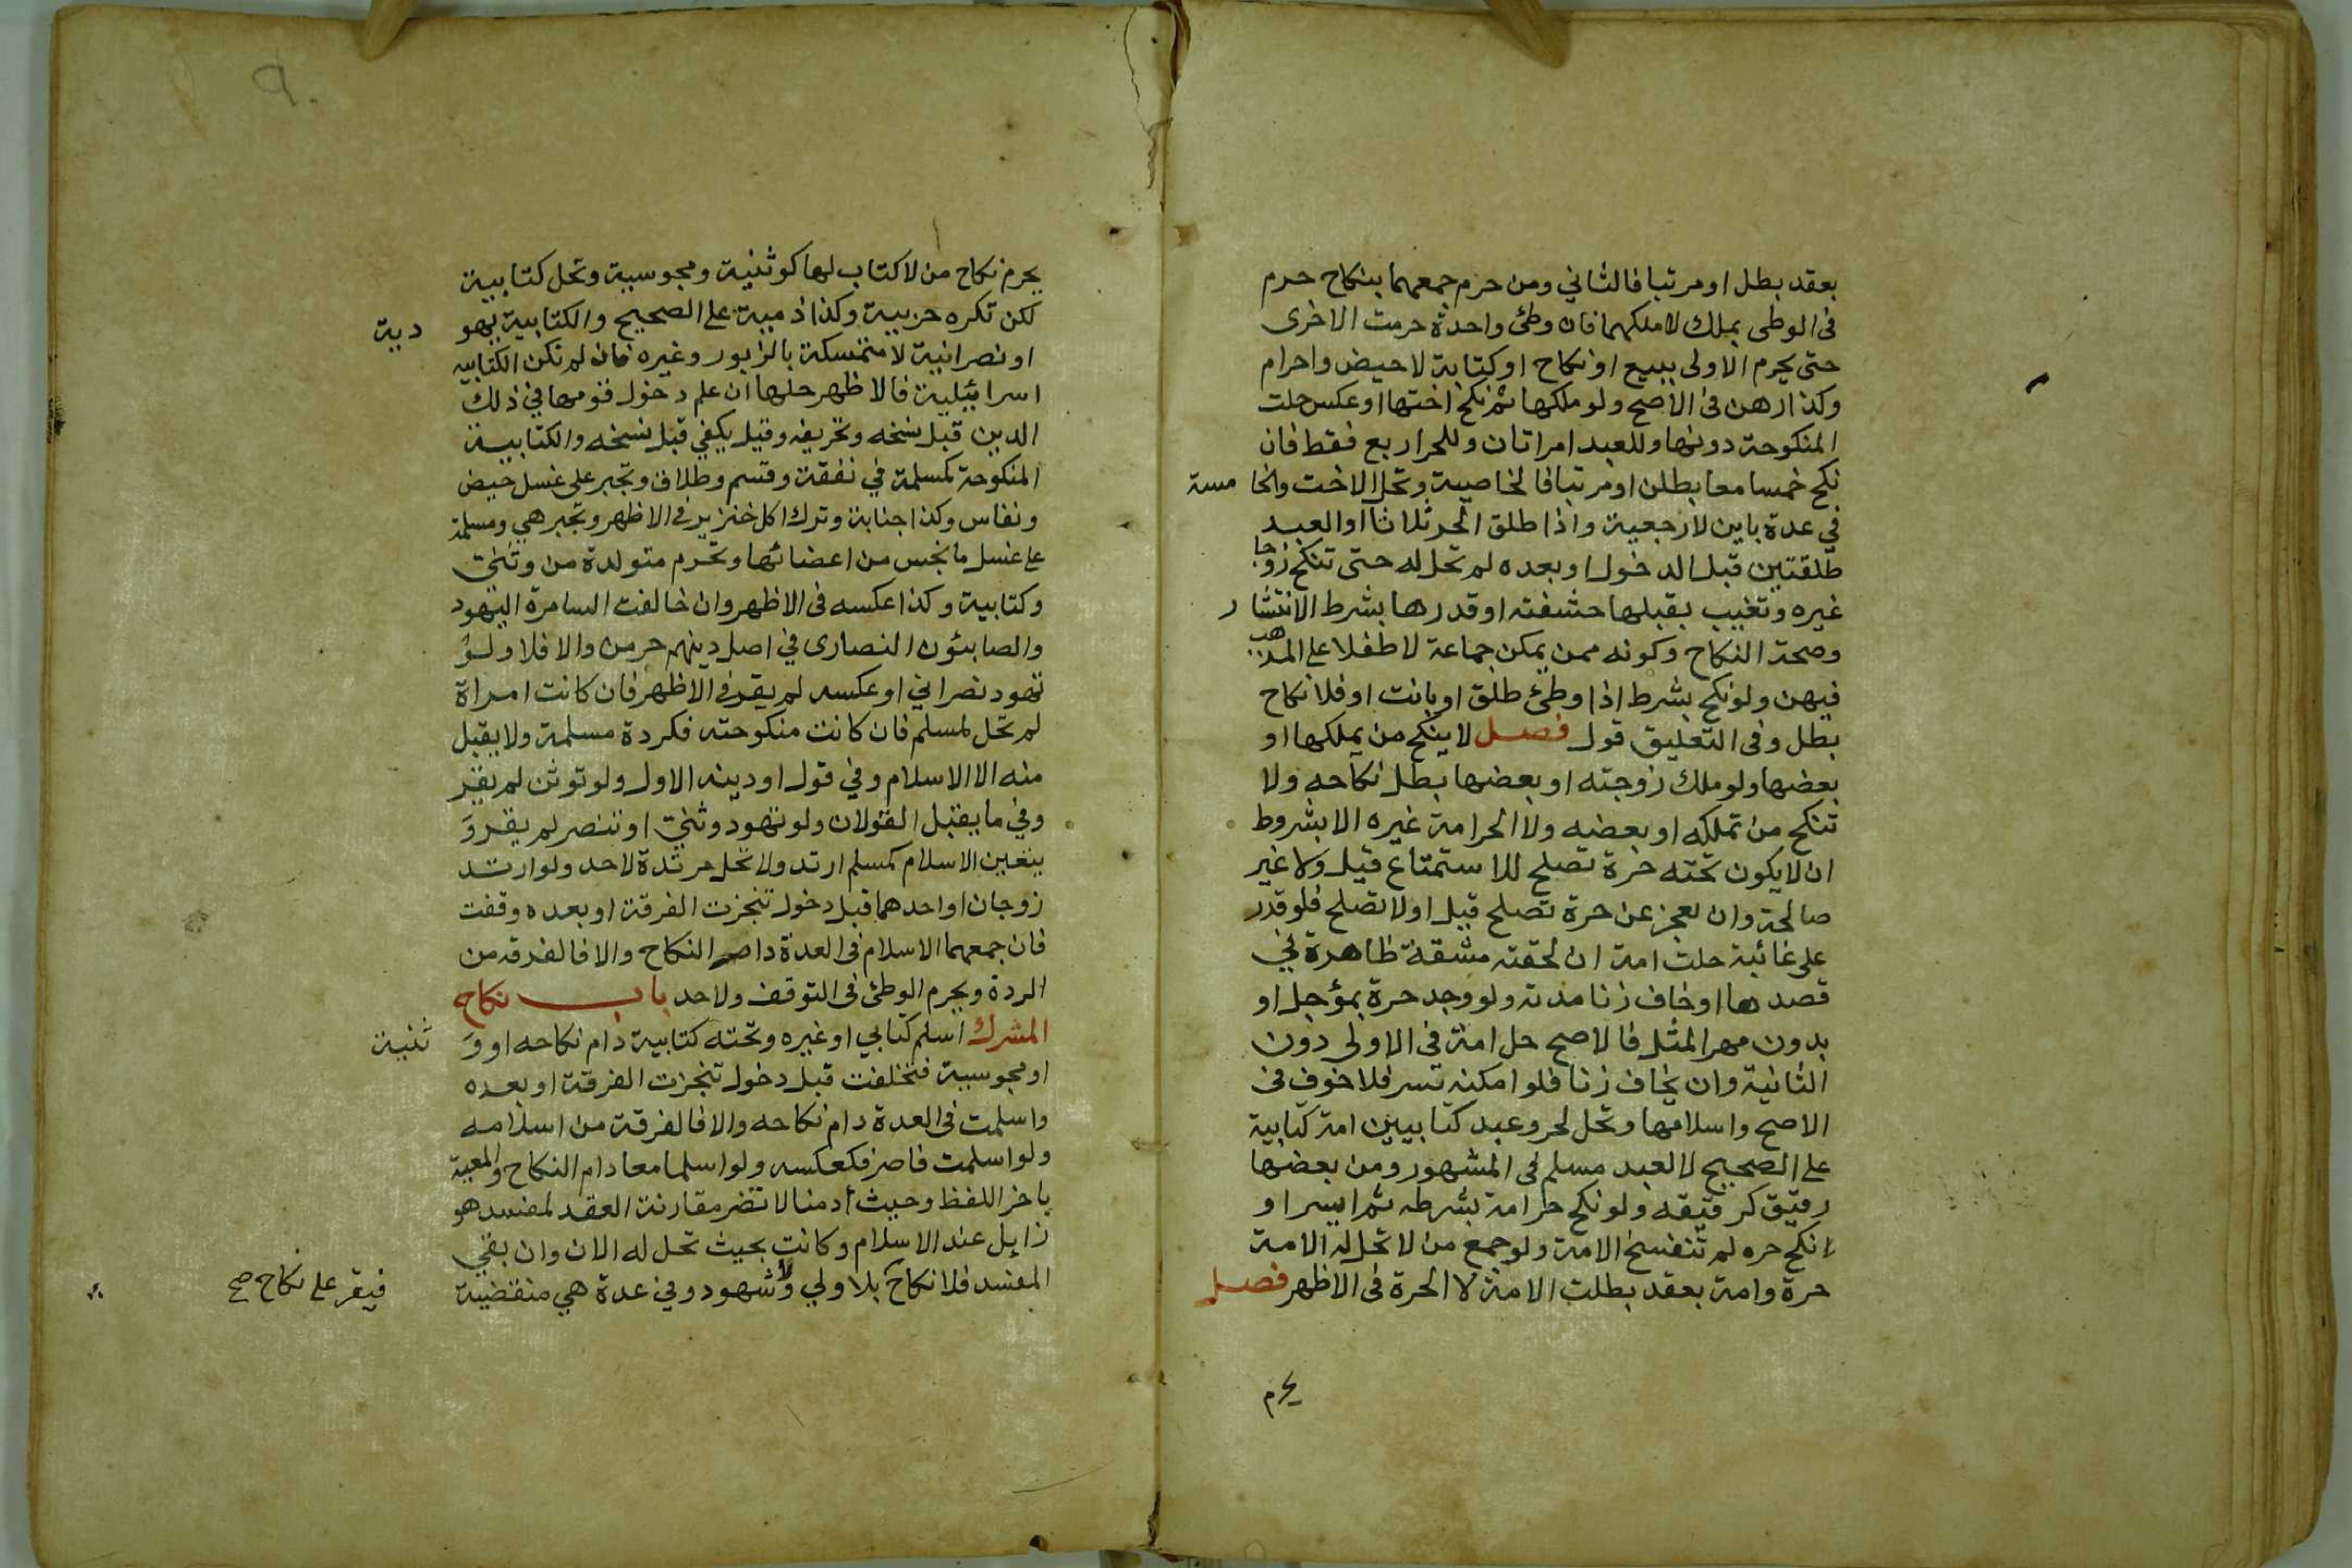 بعقد بطل او مرتبا فالثاني ومن حرم جمعهما بنكاح حرم
في الوطى بملك لا ملكهما فان وطئ واحدة حرمت الاخرى
حتى يحرم الاولى ببيع او نكاح او كتابة لا حيض واحرام
وكذا رهن في الاصح ولو ملكها ثم نكح اختها او عكس حلت
المنكوحة دونها وللعبد امراتان وللحر اربع فقط فان
نكح خمسا معا بطلن او مرتبا فالخامسة وتحل الاخت والخامسة
في عدة باين لا رجعية واذا طلق الحر ثلاثا او العبد
طلقتين قبل الدخول او بعده لم تحل له حتى تنكح زوجا
غيره وتغيب بقبلها حشفته او قدرها بشرط الانتشار
وصحة النكاح وكونه ممن يمكن جماعة لا طفلا على المذهب
فيهن ولو نكح بشرط اذا وطئ طلق او بانت او فلا نكاح
بطل وفي التعليق قول فصل لا ينكح من يملكها او
بعضها ولو ملك زوجته او بعضها بطل نكاحه ولا
تنكح من تملكه او بعضه ولا الحر امة غيره الا بشروط
ان لا يكون تحته حرة تصلح للاستمتاع قيل ولا غير
صالحة وان يعجز عن حرة تصلح قيل او لا تصلح فلو قدر
على غائبة حلت امة ان لحقته مشقة ظاهرة في
قصدها او خاف زنا مدته ولو وجد حرة بمؤجل او
بدون مهر المثل فالاصح حل امة في الاولى دون
الثانية وان يخاف زنا فلو امكنه تسر فلا خوف في
الاصح واسلامها وتحل لحر وعبد كتابيين امة كتابية
على الصحيح لا لعبد مسلم في المشهور ومن بعضها
رقيق كرقيقه ولو نكح حر امة بشرطه ثم ايسر او
نكح حره لم تنفسخ الامة ولو جمع من لا تحل له الامة
حرة وامة بعقد بطلت الامة لا الحرة في الاظهر فصل
يحرم
٩٠
يحرم نكاح من لا كتاب لها كوثنية ومجوسية وتحل كتابية
لكن تكره حربية وكذا ذمية على الصحيح والكتابية يهو دية
او نصرانية لا متمسكة بالزبور وغيره فان لم تكن الكتابيه
اسرائيلية فالاظهر حلها ان علم دخول قومها في ذلك
الدين قبل نسخه وتحريفه وقيل يكفي قبل نسخه والكتابية
المنكوحة كمسلمة في نفقة وقسم وطلاق وتجبر على غسل حيض
ونفاس وكذا جنابة وترك اكل خنزير في الاظهر وتجبر هي ومسلمة
على غسل ما نجس من اعضائها وتحرم متولدة من وثني
وكتابية وكذا عكسه في الاظهر وان خالفت السامرة اليهود
والصابئون النصارى في اصل دينهم حرمن والا فلا ولو
تهود نصراني او عكسه لم يقر في الاظهر فان كانت امراة
لم تحل لمسلم فان كانت منكوحته فكردة مسلمة ولا يقبل
منه الا الاسلام وفي قول او دينه الاول ولو توثن لم يقر
وفي ما يقبل القولان ولو تهود وثني او تنصر لم يقر و
يتعين الاسلام كمسلم ارتد ولا تحل مرتدة لاحد ولو ارتد
زوجان او احدهما قبل دخول تنجزت الفرقة او بعده وقفت
فان جمعهما الاسلام في العدة دام النكاح والا فالفرقه من
الردة ويحرم الوطئ في التوقف ولا حد باب نكاح
المشرك اسلم كتابي او غيره وتحته كتابية دام نكاحه او و ثنية
او مجوسية فتخلفت قبل دخول تنجزت الفرقة او بعده
واسلمت في العدة دام نكاحه والا فالفرقة من اسلامه
ولو اسلمت فاصر فكعكسه ولو اسلما معا دام النكاح والمعية
باخر اللفظ وحيث أدمنا لا تضر مقارنة العقد لمفسد هو
زايل عند الاسلام وكانت بحيث تحل له الان وان بقي
المفسد فلا نكاح بلا ولي ولا شهود وفي عدة هي منقضية
فيقر على نكاح صح